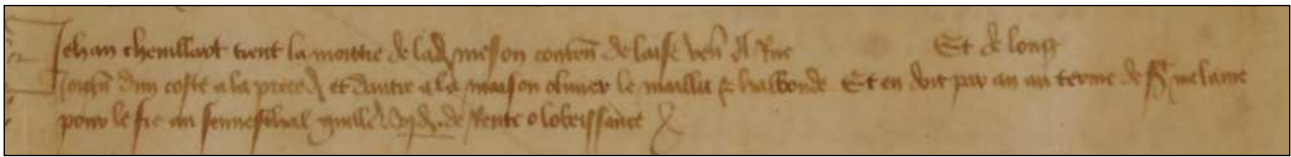 Jehan chenillart tient la moitie de lad meson conten de laise ven d rue Et de long
Joign dun coste a la preced et dautre a la maison olivier le maillu halbonde Et en doit par an au terme de me lame
pour le fie au senneschal de rente o lobeissance